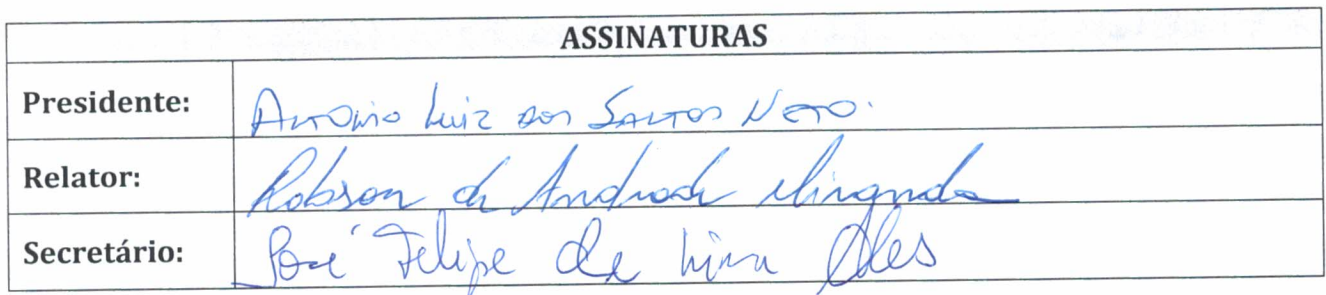 ASSINATURAS
Presidente: Antonio Luiz dos Santos Neto.
Relator: Robson de Andrade Miranda
Secretário: José Felipe de Lima